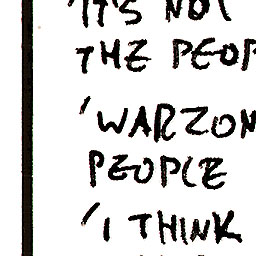 'IT'S NOT
THE PEOP
'WARZON
PEOPLE
'I THINK